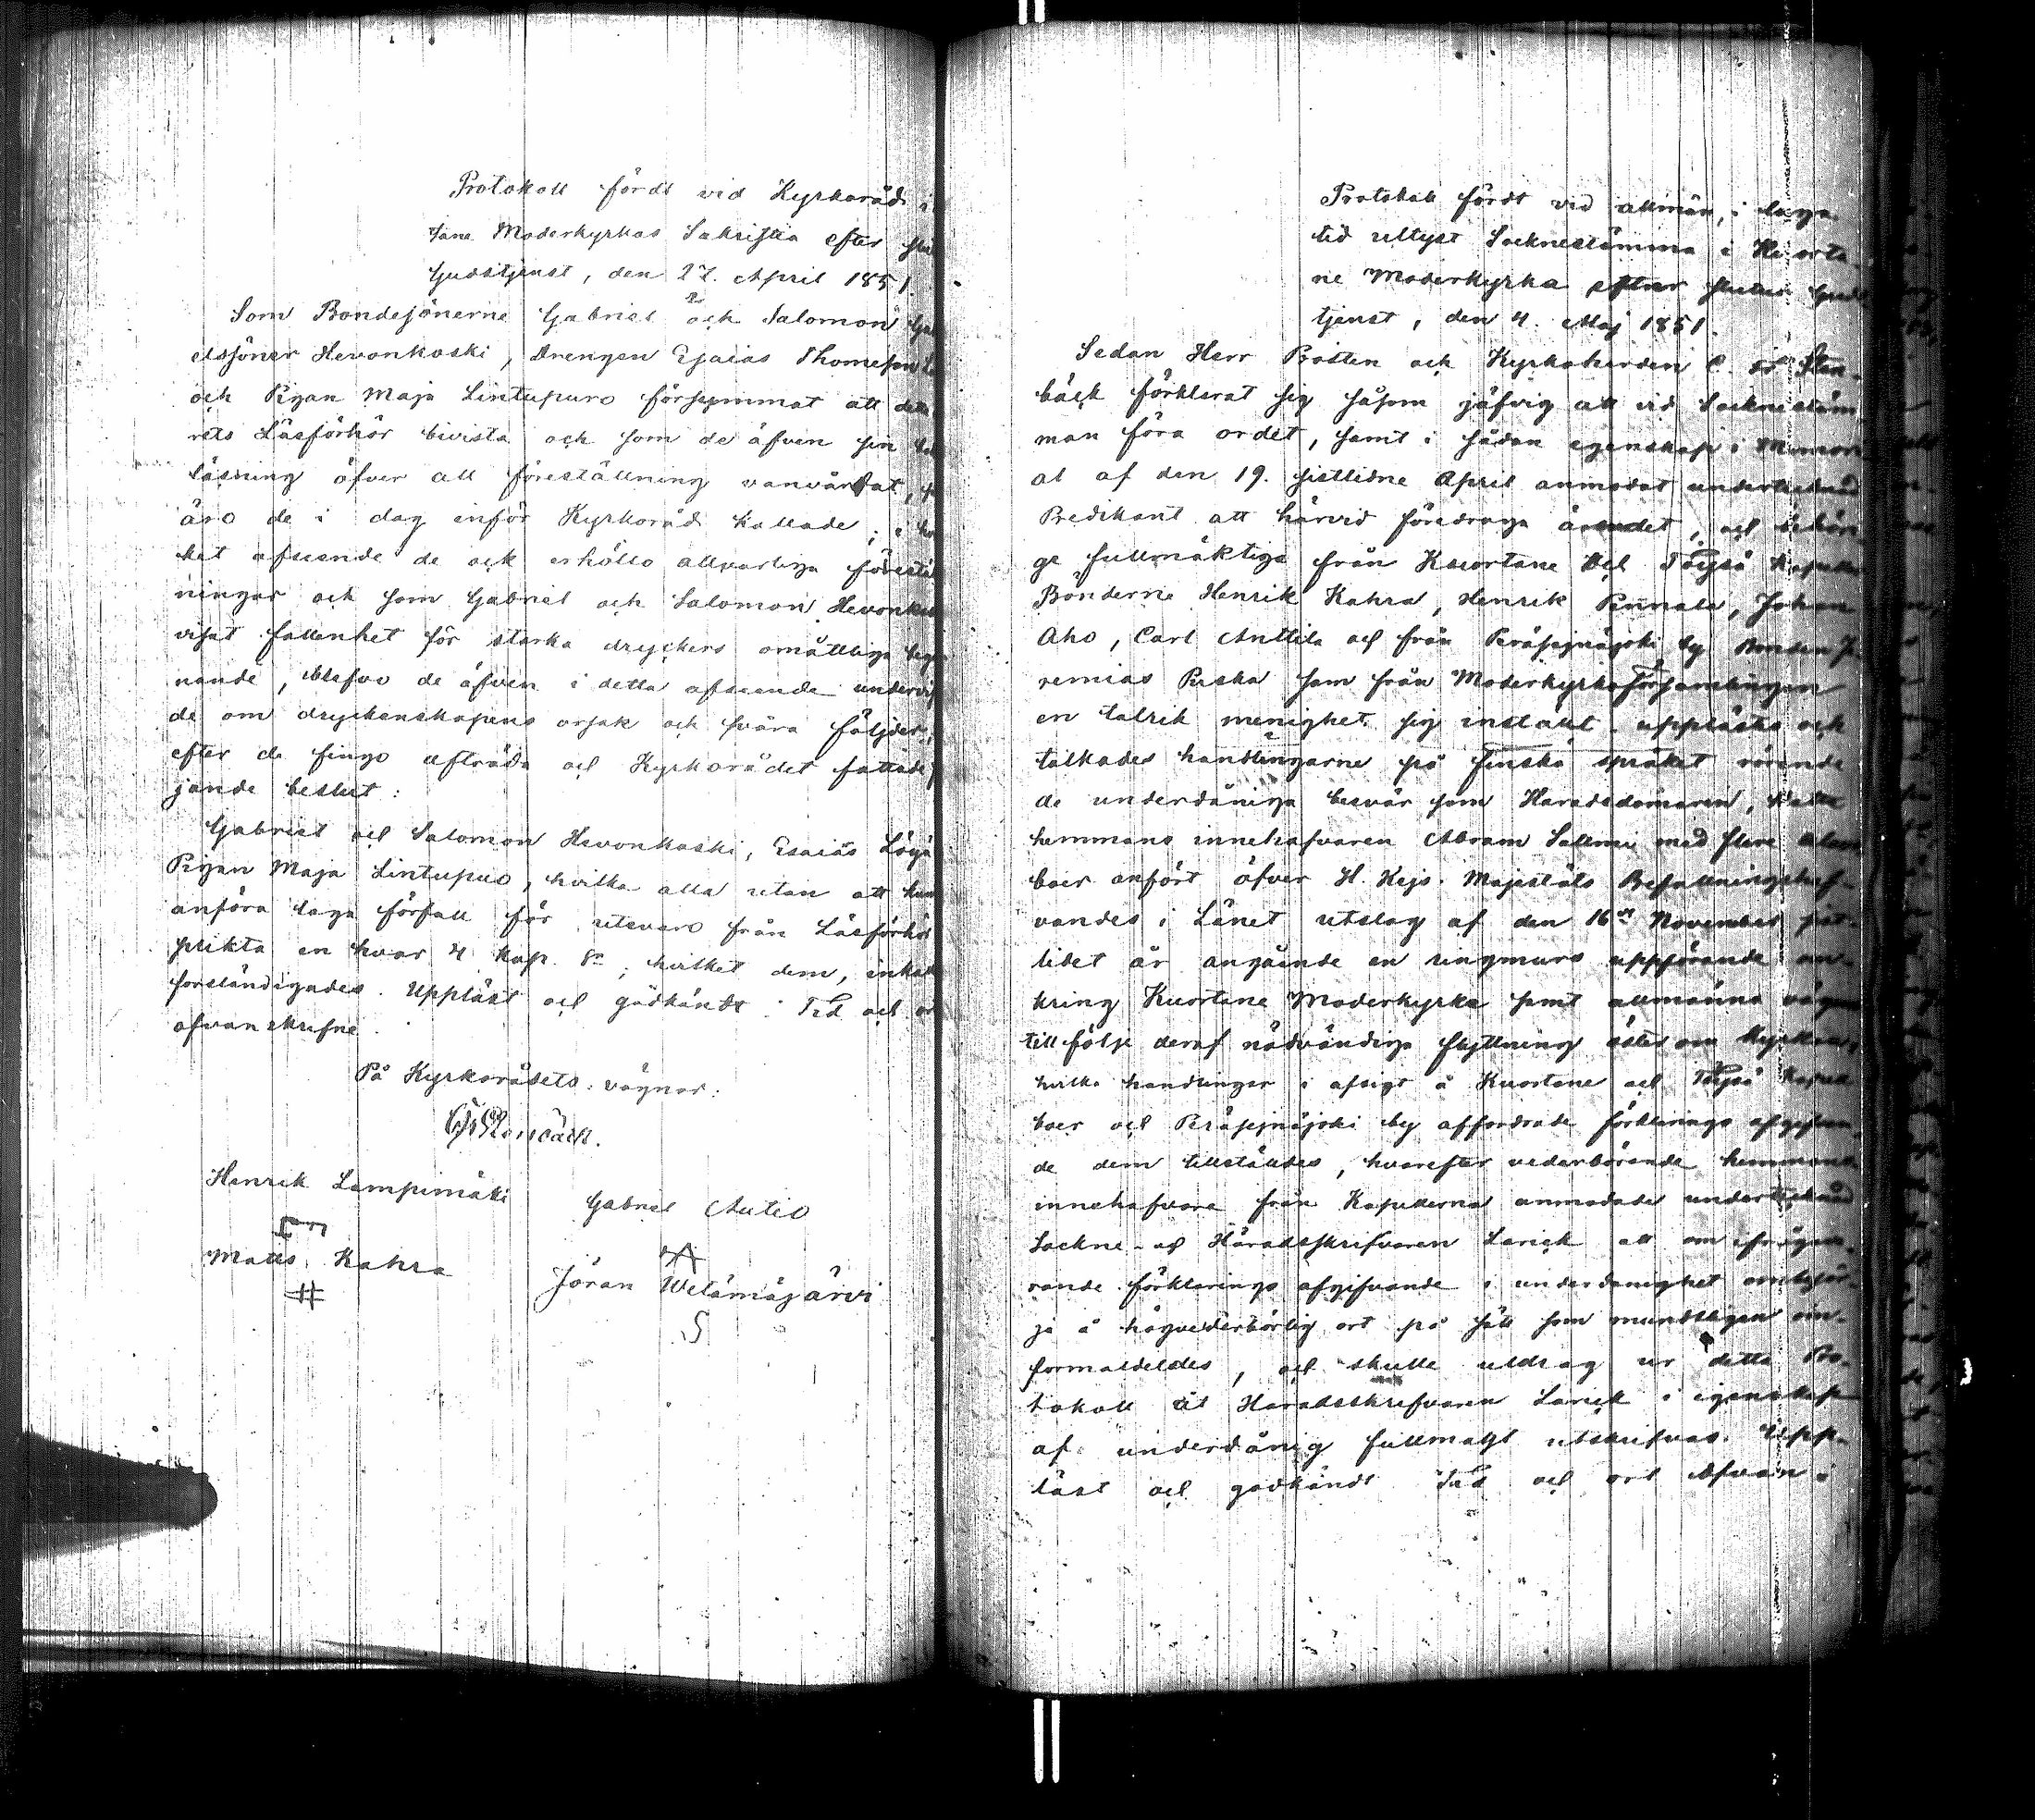 Protokoll fördt vid Kyrkoråd i
tane Moderkyrkas Sakristia efter slu
Gudstjenst, den 27. April 1851.
Som Bondesönerne Gabriel och Salomon Ga
elssöner Hevonkoski, Drengen Esaias Thomeson
och Pigan Maja Lintupuro försummat att detta
rets Läsförhör bivista och som de äfven sin
läsning öfver all föreställning vanvårdat,
äro de i dag inför Kyrkoråd kallade, i
ket afseende de ock erhöllo allvarliga förestäl
ningar och som Gabriel och Salomon Hevonkos
visat fallenhet för starka dryckers omåttliga beg
nande, blefvo de äfven i detta afseende undervis
de om dryckenskapens orsak och svåra följder,
efter de fingo afträda och Kyrkorådet fattade
jande beslut:
Gabriel och Salomon Hevonkoski, Esaias
Pigan Maja Lintupuro, hvilka alla utan att kun
anföra laga förfall för utevaro från Läsförhör
plikta en hvar 4 kop. Sr; hvilket dem, inkall
forständigades. Uppläst och godkändt. Tid och or
ofvanskrifne.
På Kyrkorådets vägnar:
Stenbäck.
Henrik Lampimäki
Gabriel Autio
Matts Kahra
Jöran Wetämäjärvi
Protokoll fördt vid allmän, i laga
tid utlyst Socknestämma i Kuorta-
ne Moderkyrka efter slutad Guds
tjenst, den 4. Maj 1851.
Sedan Herr Prosten och Kyrkoherden C. Fr. Sten-
bäck förklarat sig såsom jäfvig att vid Socknestäm
man föra ordet, samt i sådan egenskap i Memori
al af den 19. sistlidne April anmodat undertecknad
Predikant att härvid föredraga ärendet, och
ge fullmäktige från Kuortane och Töysä Kapell
Bönderne Henrik Kahra, Henrik Pennala, Johan
Aho, Carl Anttila och från Peräsejnäjoki by Bonden Je
remias Perska som från Moderkyrkoförsamlingen
en talrik menighet sig inställt upplästes och
tolkades handlingarne på finska språket rörande
de underdåniga besvär som Häradsdomaren,
hemmans innehafvaren Abram Salmi med flere
boer anfört öfver H. Kejs. Majestäts Befallningshaf-
vandes i Länet utslag af den 16de November sist
lidet år angående en ringmurs uppförande om-
kring Kuortane Moderkyrka samt allmänna vägens
till följe deraf nödvändiga flyttning öster om Kyrkan,
hvilka handlingar i afsigt å Kuortane och Töysä Kapell
boer och Peräsejnäjoki by affordrade förklarings afgifvan
de dem tillställdes, hvarefter vederbörande hemmans
innehafvare från Kapellerna anmodade undertecknad
Sockne- och Häradsskrifvaren Larick att om ifråga-
rande förklarings afgifvande i underdånighet ombesör
ja å högvederbörlig ort på sätt som mundtligen om-
formaldeldes, och skulle utdrag ur detta Pro-
tokoll åt Haradsskrifvaren Larick i egenskap
af underdånig fullmagt utskrifvas. Upp-
läst och godkändt. Tid och ort ofvan